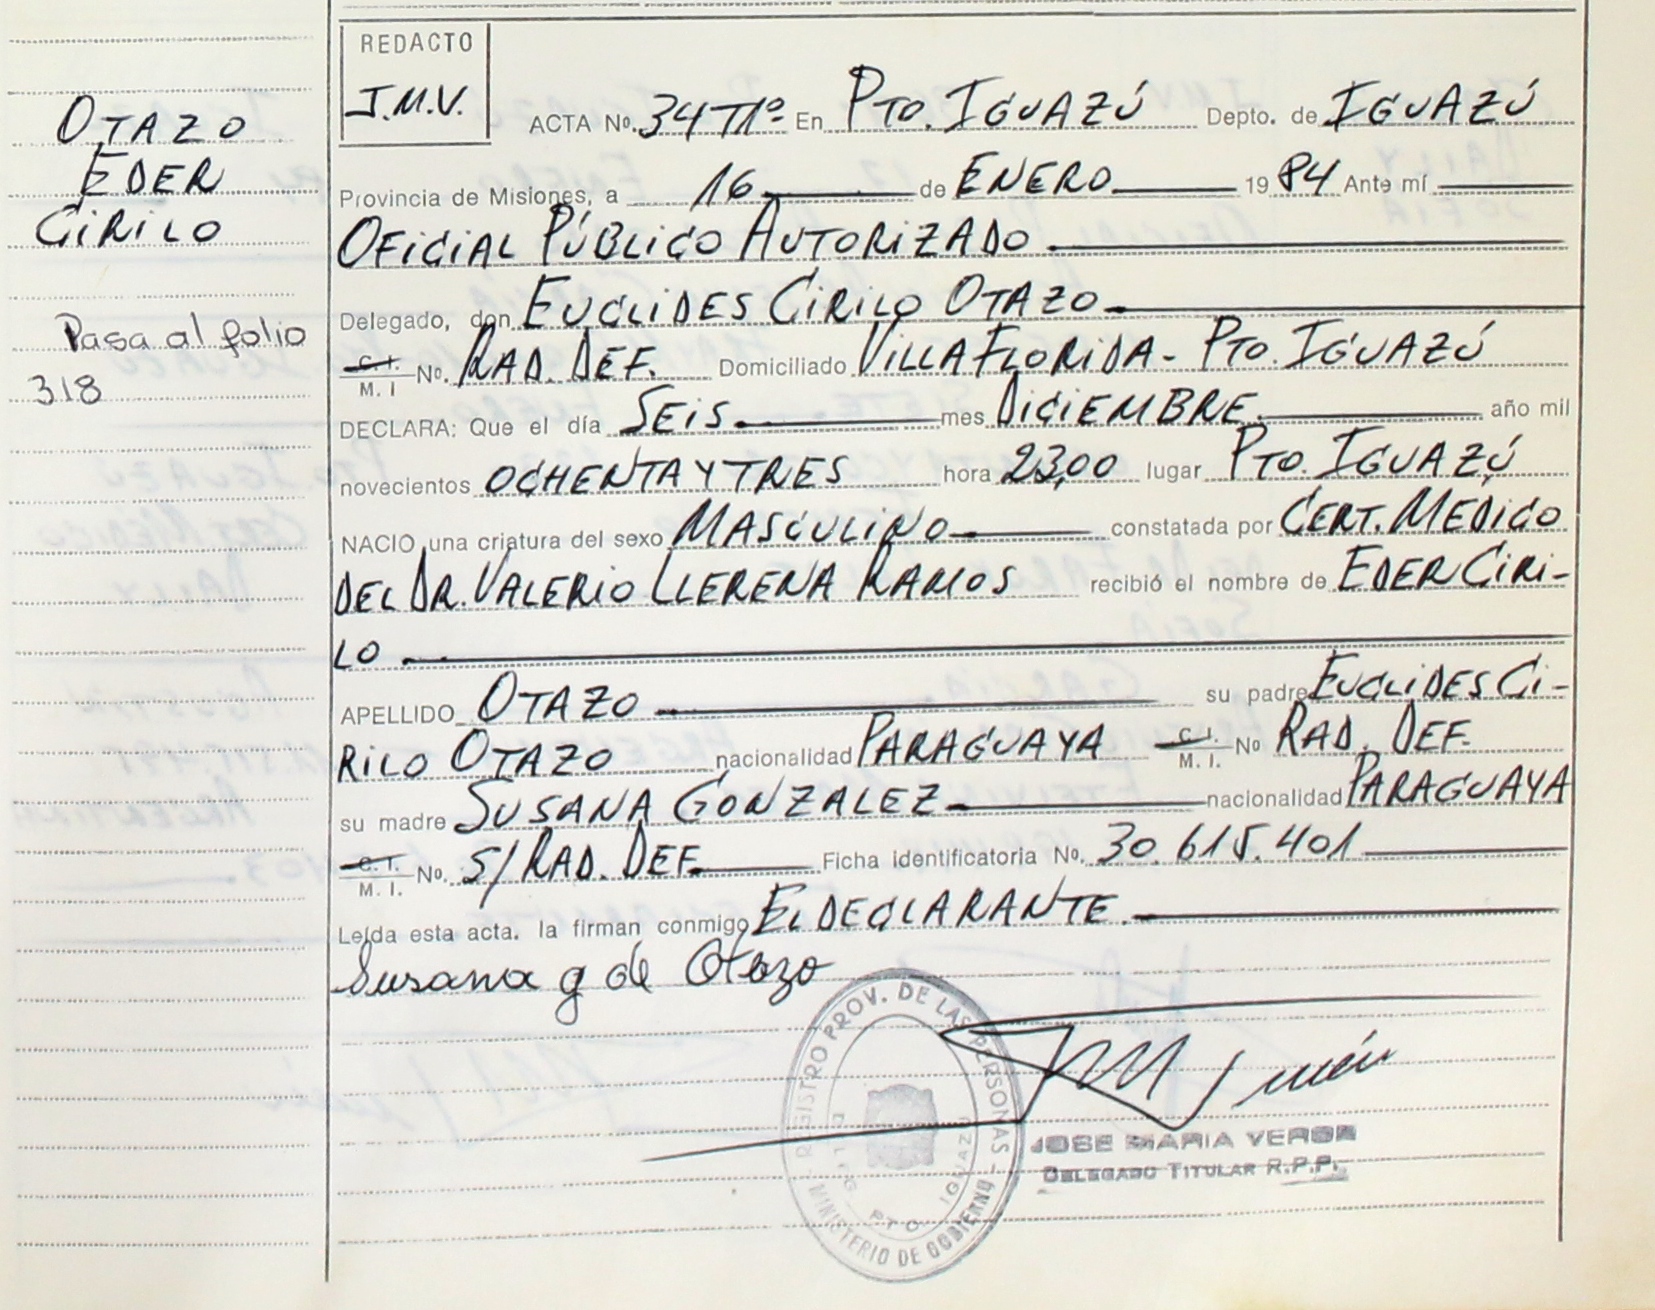 OTAZO
EDER
CIRILO
Pasa al folio
318
REDACTO
J.M.V.
ACTA No. 34 Tº1º En PTO. IGUAZÚ Depto. de IGUAZÚ
Provincia de Misiones, a 16 de ENERO 1984 Ante mí
OFICIAL PÚBLICO AUTORIZADO
Delegado, don EUCLIDES CIRILO OTAZO
C.I. M. I No. RAD. DEF. Domiciliado VILLA FLORIDA - PTO. IGUAZÚ
DECLARA: Que el día SEIS mes DICIEMBRE año mil
novecientos OCHENTA Y TRES hora 23,00 lugar PTO. IGUAZÚ
NACIO una criatura del sexo MASCULINO constatada por CERT. MEDICO
DEL DR. VALERIO LLERENA RAMOS recibió el nombre de EDER CIRI-
LO
APELLIDO OTAZO su padre EUCLIDES CI-
RILO OTAZO nacionalidad PARAGUAYA C.I. M. I. No RAD. DEF.
su madre SUSANA GONZALEZ nacionalidad PARAGUAYA
C.I. M. I. No. S/ RAD. DEF. Ficha identificatoria No. 30.615.401
Leída esta acta. la firman conmigo EL DECLARANTE.
Susana g de Otazo
REGISTRO PROV. DE LAS PERSONAS
PTO. IGUAZU
MINISTERIO DE GOBIERNO
JOSE MARIA VERON
DELEGADO TITULAR R.P.P.